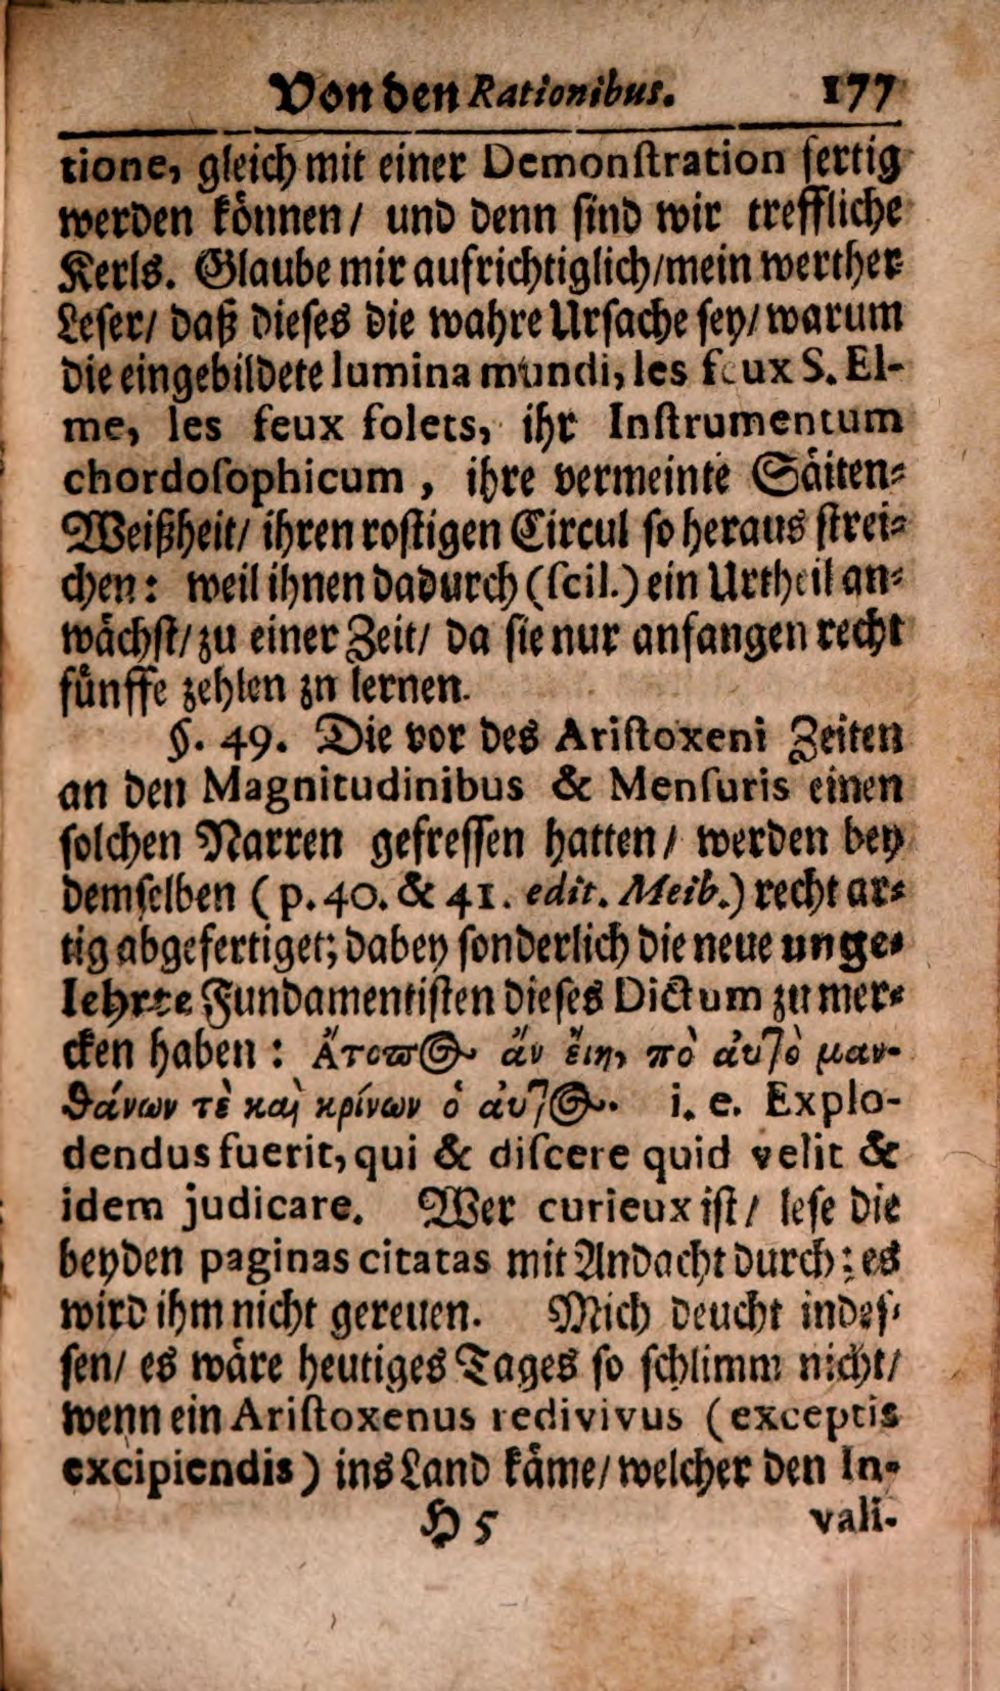 Von den Rationibus. 177
tione, gleich mit einer Demonſtration fertig
werden koͤnnen / und denn ſind wir treffliche
Kerls. Glaube mir aufrichtiglich / mein werther
Leſer / daß dieſes die wahre Urſache ſey / warum
die eingebildete lumina mundi, les feux S. El-
me, les feux folets, ihr Inſtrumentum
chordoſophicum , ihre vermeinte Saͤiten-
Weißheit / ihren roſtigen Circul ſo heraus ſtrei-
chen: weil ihnen dadurch (ſcil.) ein Urtheil an-
waͤchſt / zu einer Zeit / da ſie nur anfangen recht
fuͤnffe zehlen zn lernen.
§. 49. Die vor des Ariſtoxeni Zeiten
an den Magnitudinibus & Menſuris einen
ſolchen Narren gefreſſen hatten / werden bey
demſelben ( p. 40. & 41. edit. Meib.) recht ar-
tig abgefertiget; dabey ſonderlich die neue unge-
lehrte Fundamentiſten dieſes Dictum zu mer-
cken haben : Ἄτοπ<unk>ος ἄν ἔιη, πὸ ἀυτὸ μαν-
θάνων τὲ καὶ κρίνων ὁ ἀυτὸς. i. e. Explo-
dendus fuerit, qui & diſcere quid velit &
idem judicare. Wer curieux iſt / leſe die
beyden paginas citatas mit Andacht durch: es
wird ihm nicht gereuen. Mich deucht indeſ-
ſen / es waͤre heutiges Tages ſo ſchlimm nicht /
wenn ein Ariſtoxenus redivivus ( exceptis
excipiendis ) ins Land kaͤme / welcher den In-
H 5 vali-